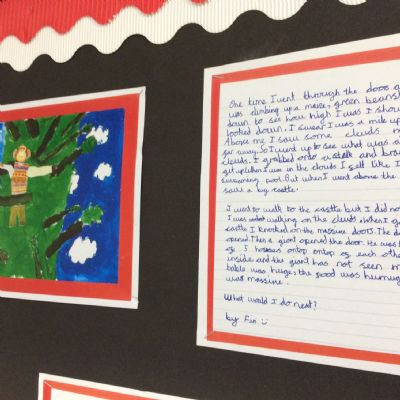 One time I went through the door a
was climbing up a maive, green beanst
down to see how high I was I shou
looked down. I swear I was a mile up
Above me I saw some clouds n
far away. So I went up to see what was a
clouds. I grabbed onto a stalk and bra
get up When I was in the clouds I felt like I
swimming pool. But when I went above the
saw a big castle.
I went to walk to the castle but I did no
I was walking on the clouds. When I g
castle I knocked on the massive doors. The d
opened. Then a giant opened the door. He was
of 3 houses ontop ontop of each othe
inside and the giant has not seen m
table was huge, the food was humung
was massive.
What would I do next?
by Fin